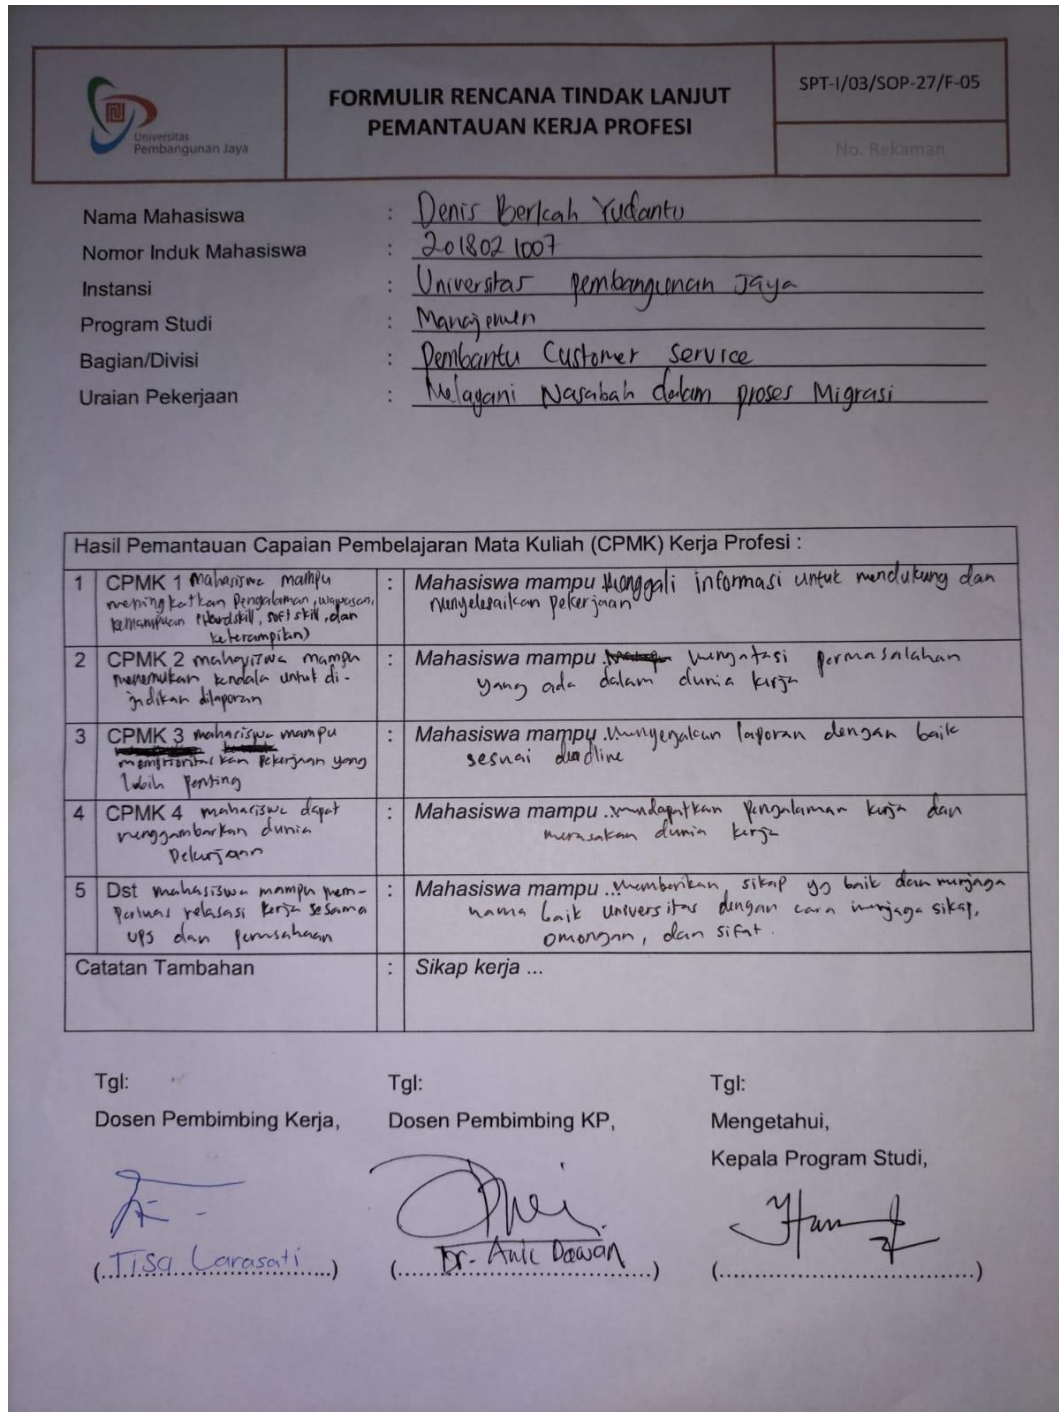 Universitas
Pembangunan Jaya
FORMULIR RENCANA TINDAK LANJUT
PEMANTAUAN KERJA PROFESI
SPT-I/03/SOP-27/F-05
No. Rekaman
Nama Mahasiswa : Denis Berkah Yudanto
Nomor Induk Mahasiswa : 2018021007
Instansi : Universitas pembangunan Jaya
Program Studi : Manajemen
Bagian/Divisi : Pembantu Customer Service
Uraian Pekerjaan : Melayani Nasabah dalam proses Migrasi
Hasil Pemantauan Capaian Pembelajaran Mata Kuliah (CPMK) Kerja Profesi :
1 CPMK 1 mahasiswa mampu
meningkatkan Pengalaman, wawasan,
kemampuan (Hardskill, softskill, dan
keterampilan)
: Mahasiswa mampu Menggali informasi untuk mendukung dan
menyelesaikan pekerjaan
2 CPMK 2 mahasiswa mampu
menemukan kendala untuk di-
jadikan dilaporan
: Mahasiswa mampu mengatasi permasalahan
yang ada dalam dunia kerja
3 CPMK 3 mahasiswa mampu
memprioritaskan Pekerjaan yang
lebih Penting
: Mahasiswa mampu Mengerjakan laporan dengan baik
sesuai deadline
4 CPMK 4 mahasiswa dapat
menggambarkan dunia
Pekerjaan
: Mahasiswa mampu ..mendapatkan pengalaman kerja dan
merasakan dunia kerja
5 Dst mahasiswa mampu mem-
perluas relasasi kerja sesama
UPJ dan perusahaan
: Mahasiswa mampu ...memberikan sikap yg baik dan menjaga
nama baik universitas dengan cara menjaga sikap,
omongan, dan sifat.
Catatan Tambahan : Sikap kerja ...
Tgl: Tgl: Tgl:
Dosen Pembimbing Kerja, Dosen Pembimbing KP, Mengetahui,
Kepala Program Studi,
(..Tisa Larasati....) (....Dr. Dawan....) (................................)